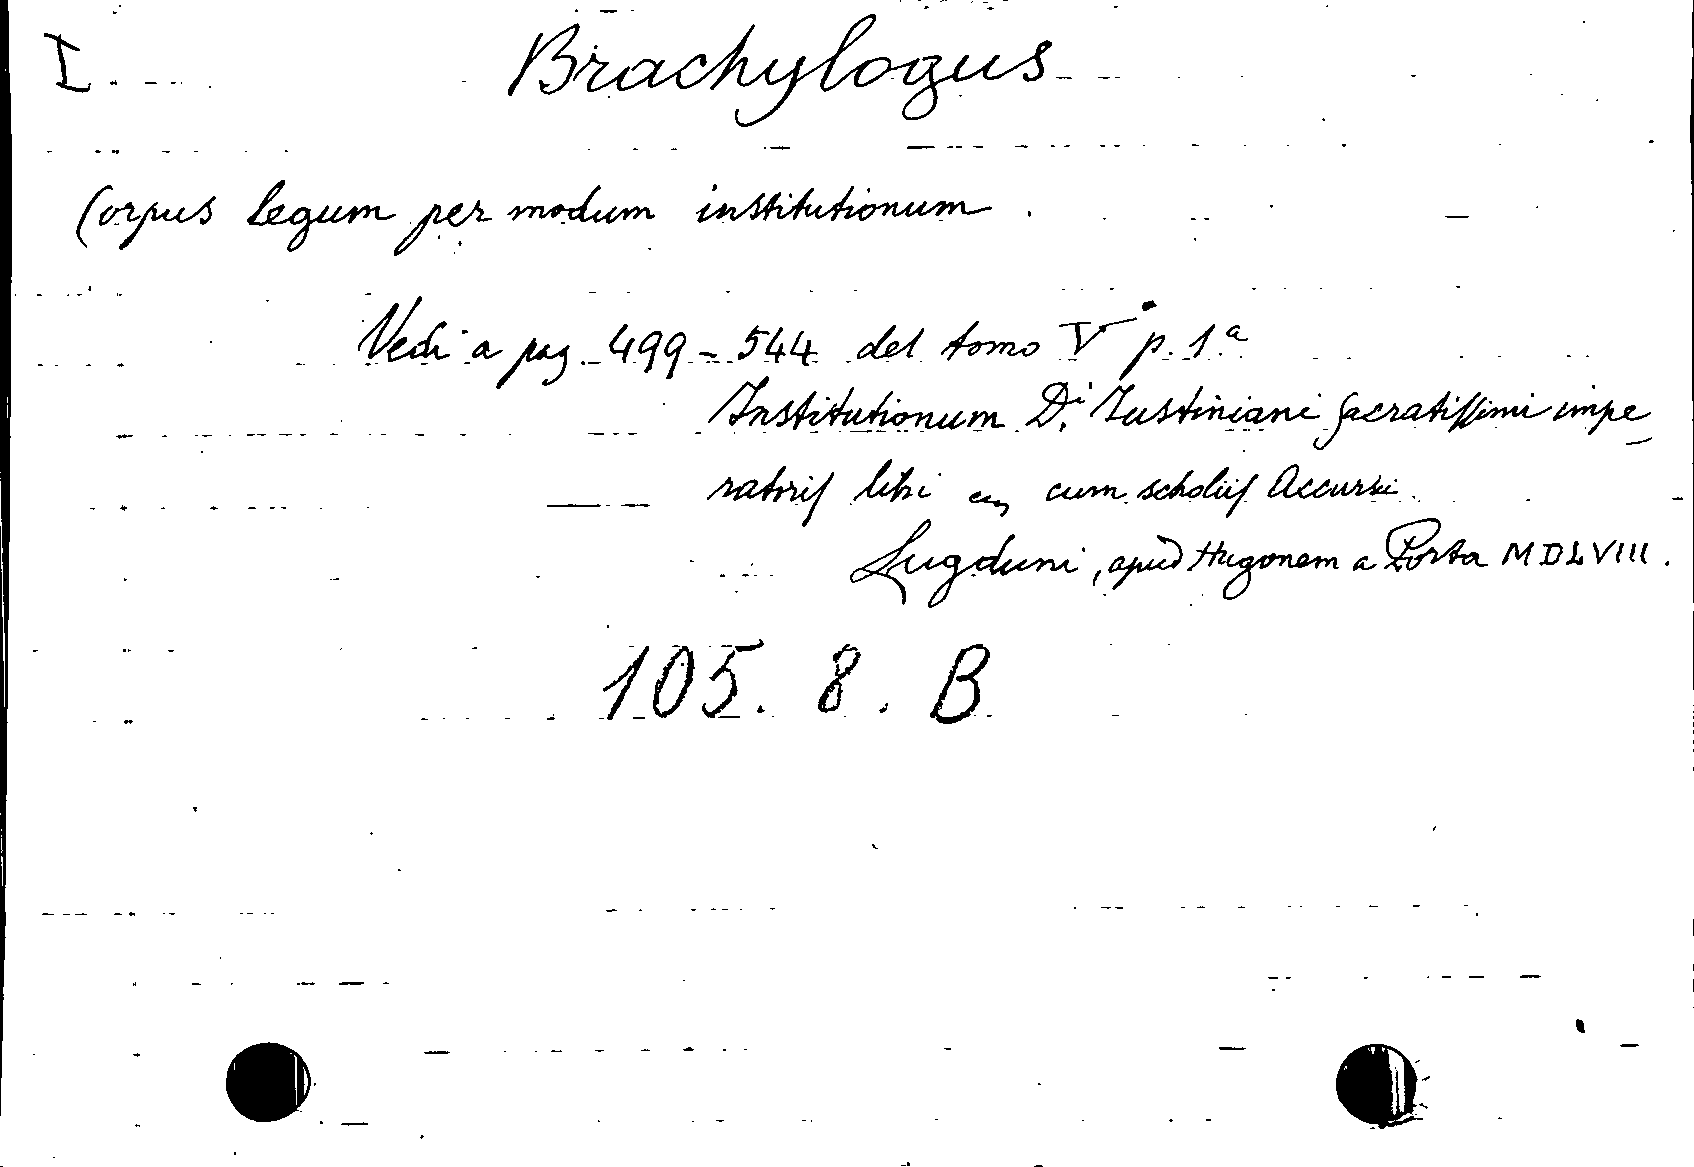 I
Brachylogus
Corpus legum per modum institutionum.
Vedi a pag. 499-544 del tomo V° p. 1ª
Institutionum D.i Iustiniani ſacratiſſimi impe-
ratoriſ libri cum scholiiſ Accursii
Lugduni, apud Hugonem a Porta MDLVIII.
105. 8. B